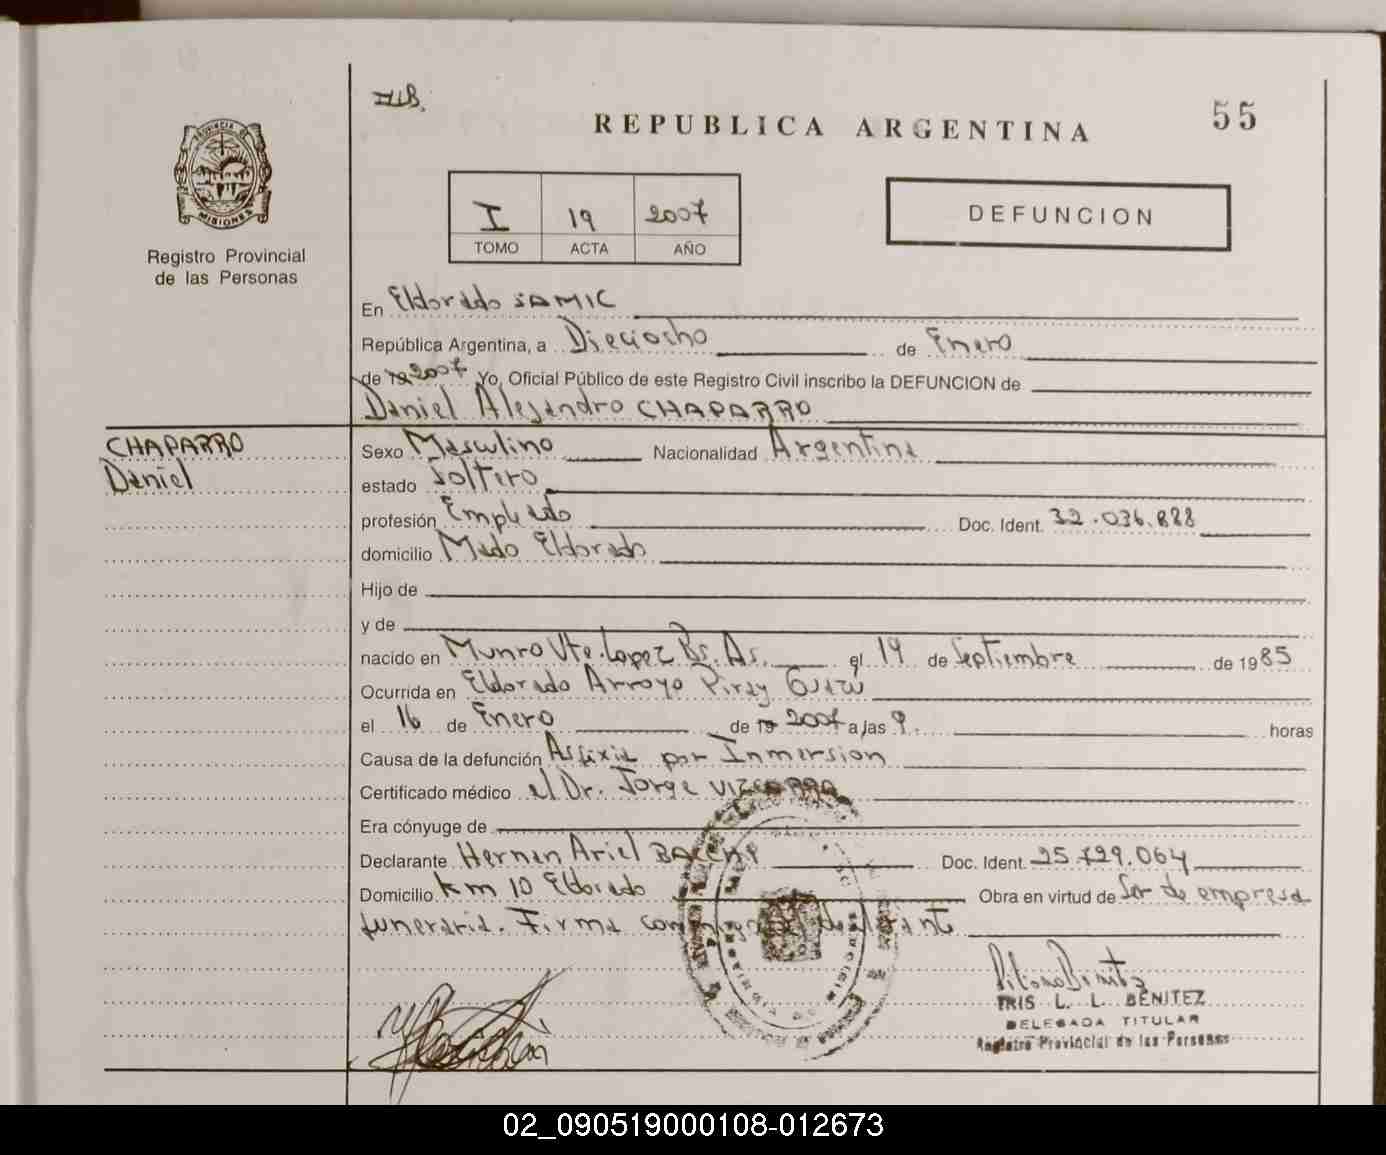 55
REPUBLICA ARGENTINA
PROVINCIA DE
MISIONES
Registro Provincial
de las Personas
I 19 2007
TOMO ACTA AÑO
DEFUNCION
En Eldorado SAMIC
República Argentina, a Dieciocho de Enero
de 19 2007 Yo, Oficial Público de este Registro Civil inscribo la DEFUNCION de
Daniel Alejandro CHAPARRO
CHAPARRO
Daniel
Sexo Masculino Nacionalidad Argentina
estado Soltero
profesión Empleado Doc. Ident. 32.036.828
domicilio Mado Eldorado
Hijo de
y de
nacido en Munro Vte. Lopez Bs. As. el 19 de Septiembre de 1985
Ocurrida en Eldorado Arroyo Piray Guazú
el 16 de Enero de 19 2007 a las 9. horas
Causa de la defunción Asfixia por Inmersion
Certificado médico el Dr. Jorge
Era cónyuge de
Declarante Hernan Ariel Doc. Ident. 25.729.064
Domicilio Km 10 Eldorado Obra en virtud de Ser de empresa
funeraria. Firma conmigo el declarante
IRIS L. L. BENITEZ
DELEGADA TITULAR
Registro Provincial de las Personas
02_090519000108-012673